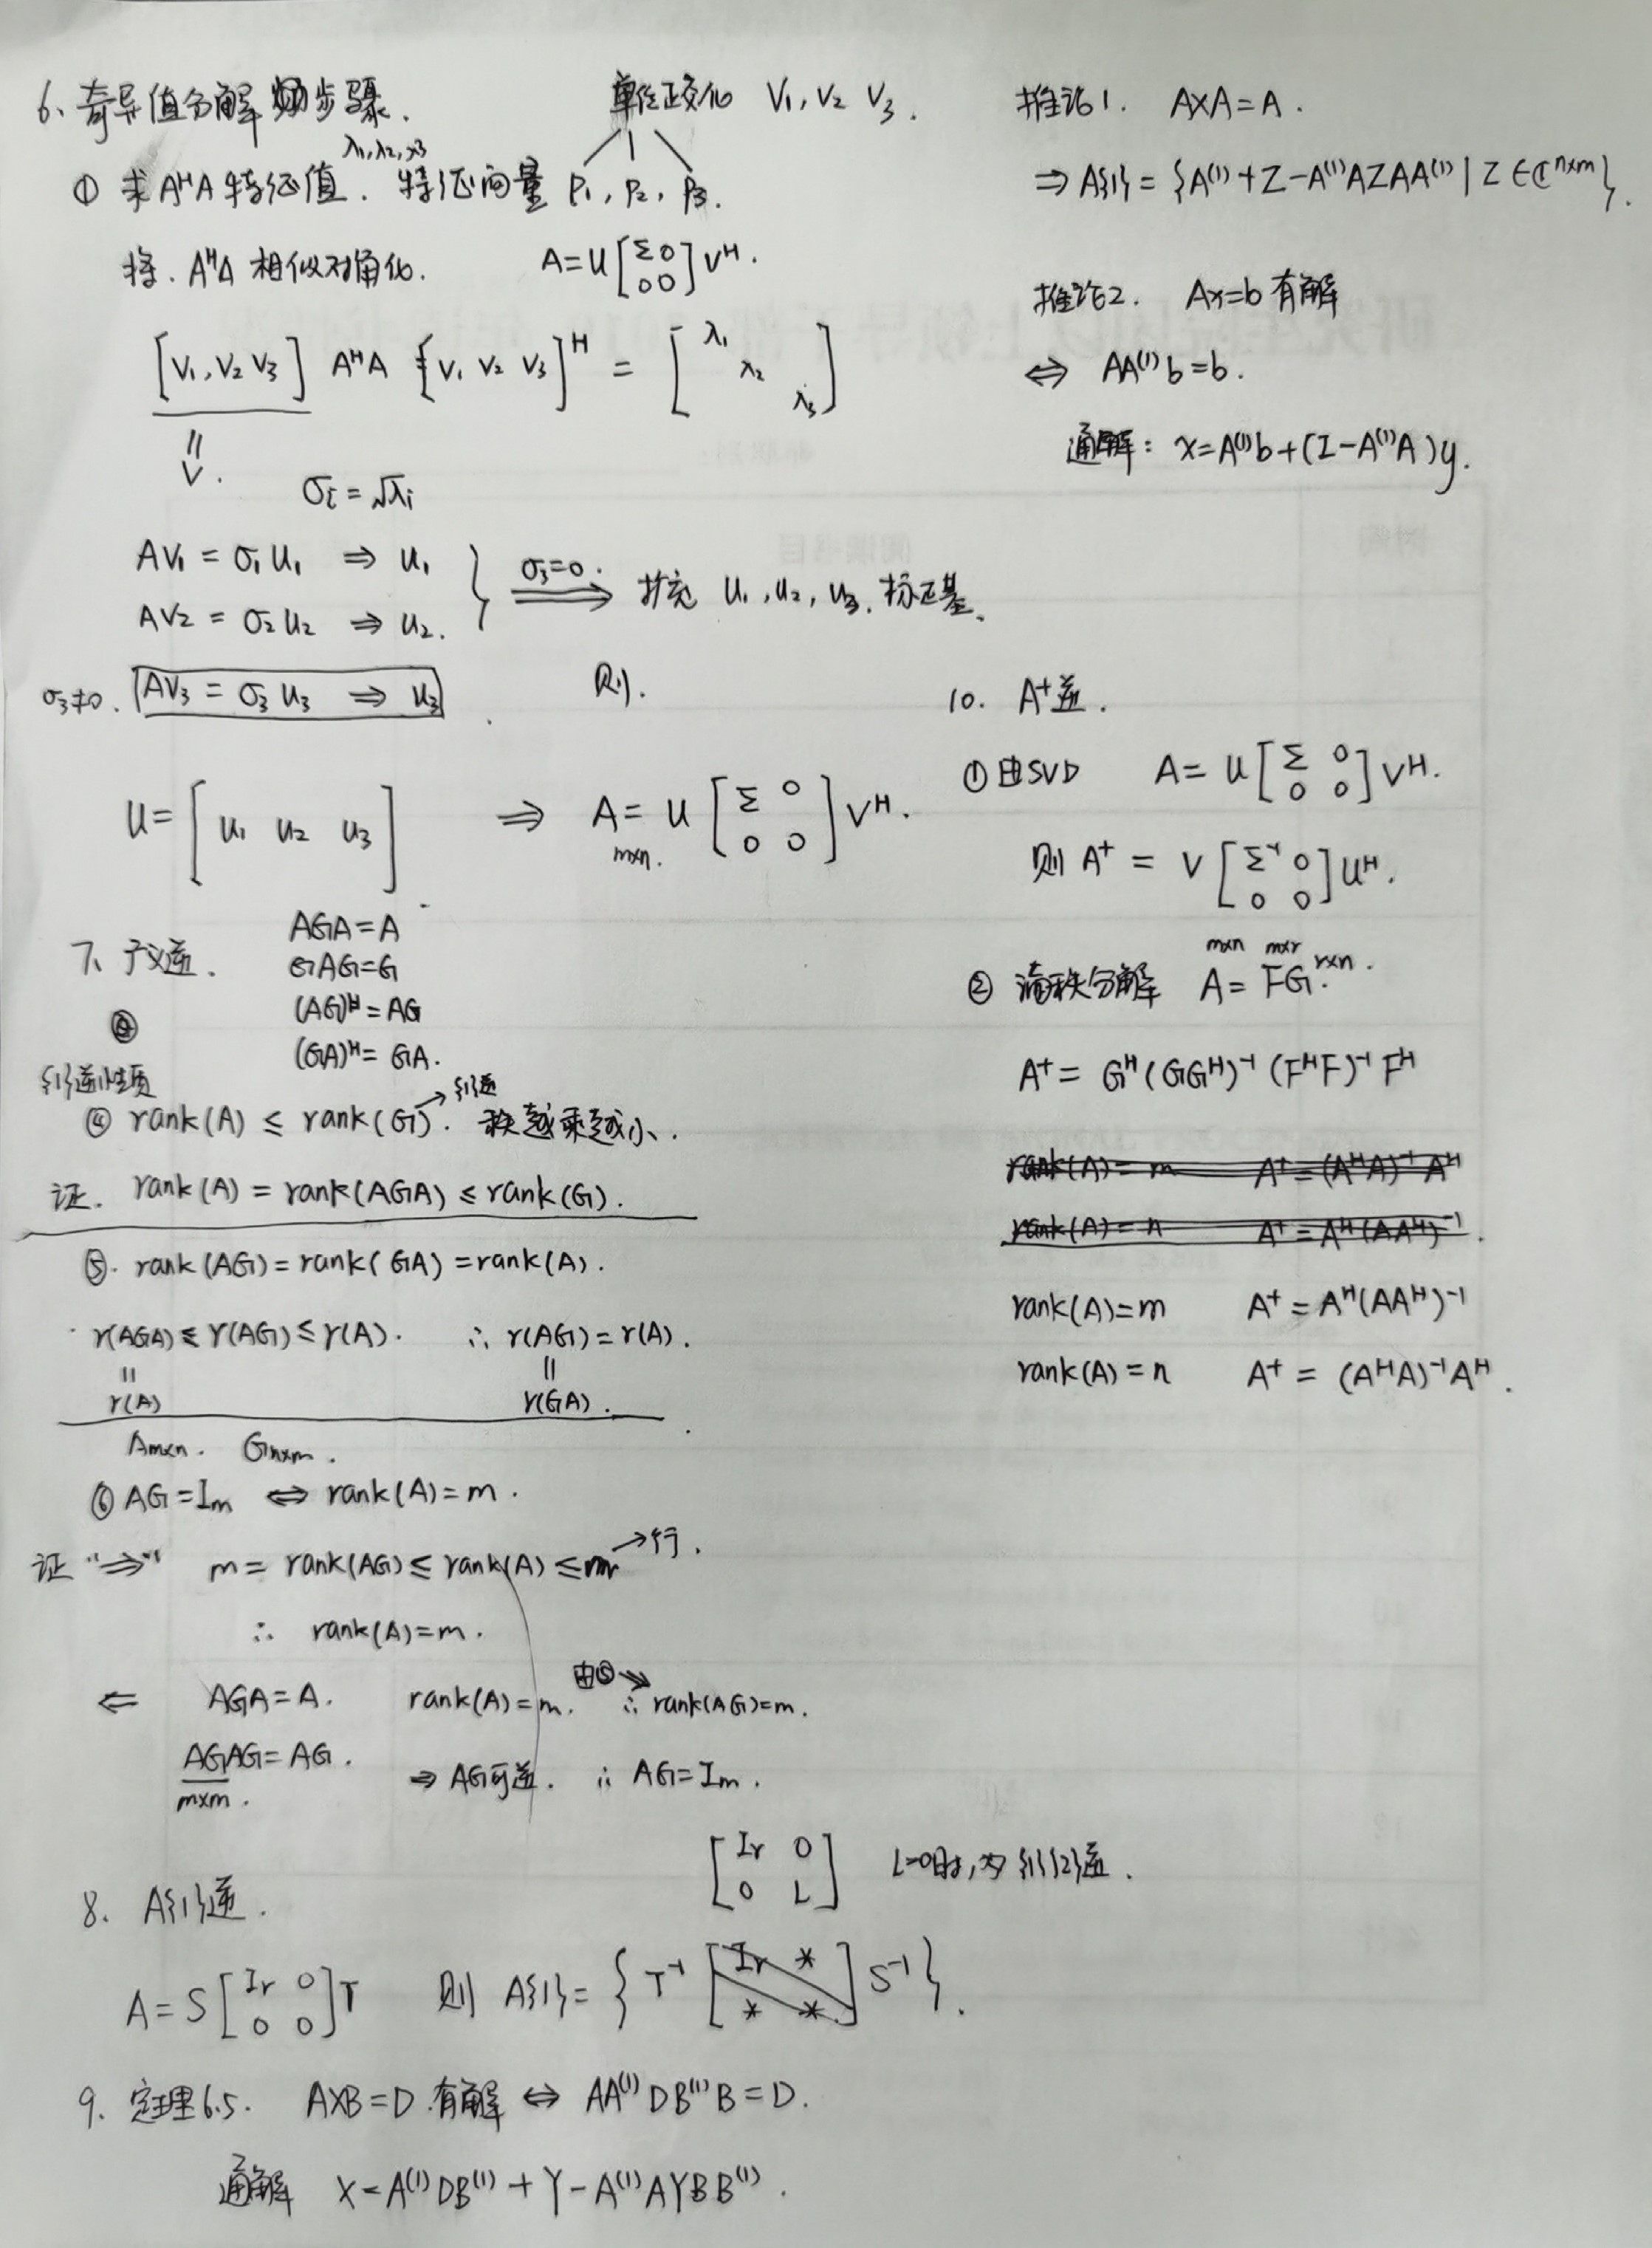 6、奇异值分解 步骤.
单位正交化 V₁, V₂ V₃.
λ₁,λ₂,λ3
① 求AᴴA特征值. 特征向量 P₁, P₂, P₃.
将. AᴴA 相似对角化. A=U[Σ 0
0 0]Vᴴ.
[V₁,V₂ V₃] AᴴA [V₁ V₂ V₃]ᴴ = [λ₁
λ₂
λ₃]
||
V.
σᵢ=√λᵢ
AV₁ = σ₁u₁ ⇒ u₁
AV₂ = σ₂u₂ ⇒ u₂.
σ₃=0. ⇒ 扩充 u₁,u₂,u₃.标正基.
σ₃≠0. AV₃ = σ₃u₃ ⇒ u₃
则.
U=[u₁ u₂ u₃] ⇒ A = U [Σ 0
0 0] Vᴴ.
m×n.
7、广义逆. AGA=A
GAG=G
(AG)ᴴ=AG
(GA)ᴴ=GA.
{1}逆性质
④ rank(A) ≤ rank(G). →{1}逆 秩越乘越小.
证. rank(A)=rank(AGA)≤rank(G).
⑤. rank(AG)=rank(GA)=rank(A).
r(AGA)≤r(AG)≤r(A). ∴ r(AG)=r(A).
|| ||
r(A) r(GA).
Am×n. Gn×m.
⑥ AG=Iₘ ⇔ rank(A)=m.
证 "⇒" m = rank(AG) ≤ rank(A) ≤ m →行.
∴ rank(A)=m.
⇐ AGA=A. rank(A)=m. 由⑤ ∴ rank(AG)=m.
AGAG=AG. ⇒ AG可逆. ∴ AG=Iₘ.
m×m.
[Iᵣ 0
0 L] L=0时,为{1}{2}逆.
8、A{1}逆.
A=S[Iᵣ 0
0 0]T 则 A{1}={T⁻¹[Iᵣ *
* *]S⁻¹}.
9、定理6.5. AXB=D.有解 ⇔ AA⁽¹⁾DB⁽¹⁾B=D.
通解 X=A⁽¹⁾DB⁽¹⁾+Y-A⁽¹⁾AYBB⁽¹⁾.
推论1. AXA=A.
⇒A{1}={A⁽¹⁾+Z-A⁽¹⁾AZAA⁽¹⁾|Z∈ℂⁿˣᵐ}.
推论2. Ax=b有解
⇔ AA⁽¹⁾b=b.
通解: x=A⁽¹⁾b+(I-A⁽¹⁾A)y.
10. A⁺逆.
①由SVD A=U[Σ 0
0 0]Vᴴ.
则 A⁺ = V[Σ⁻¹ 0
0 0]Uᴴ.
m×n m×r r×n.
② 满秩分解 A=FG.
A⁺ = Gᴴ(GGᴴ)⁻¹(FᴴF)⁻¹Fᴴ
rank(A)=m A⁺=(AᴴA)⁻¹Aᴴ
rank(A)=n A⁺=Aᴴ(AAᴴ)⁻¹.
rank(A)=m A⁺=Aᴴ(AAᴴ)⁻¹
rank(A)=n A⁺=(AᴴA)⁻¹Aᴴ.